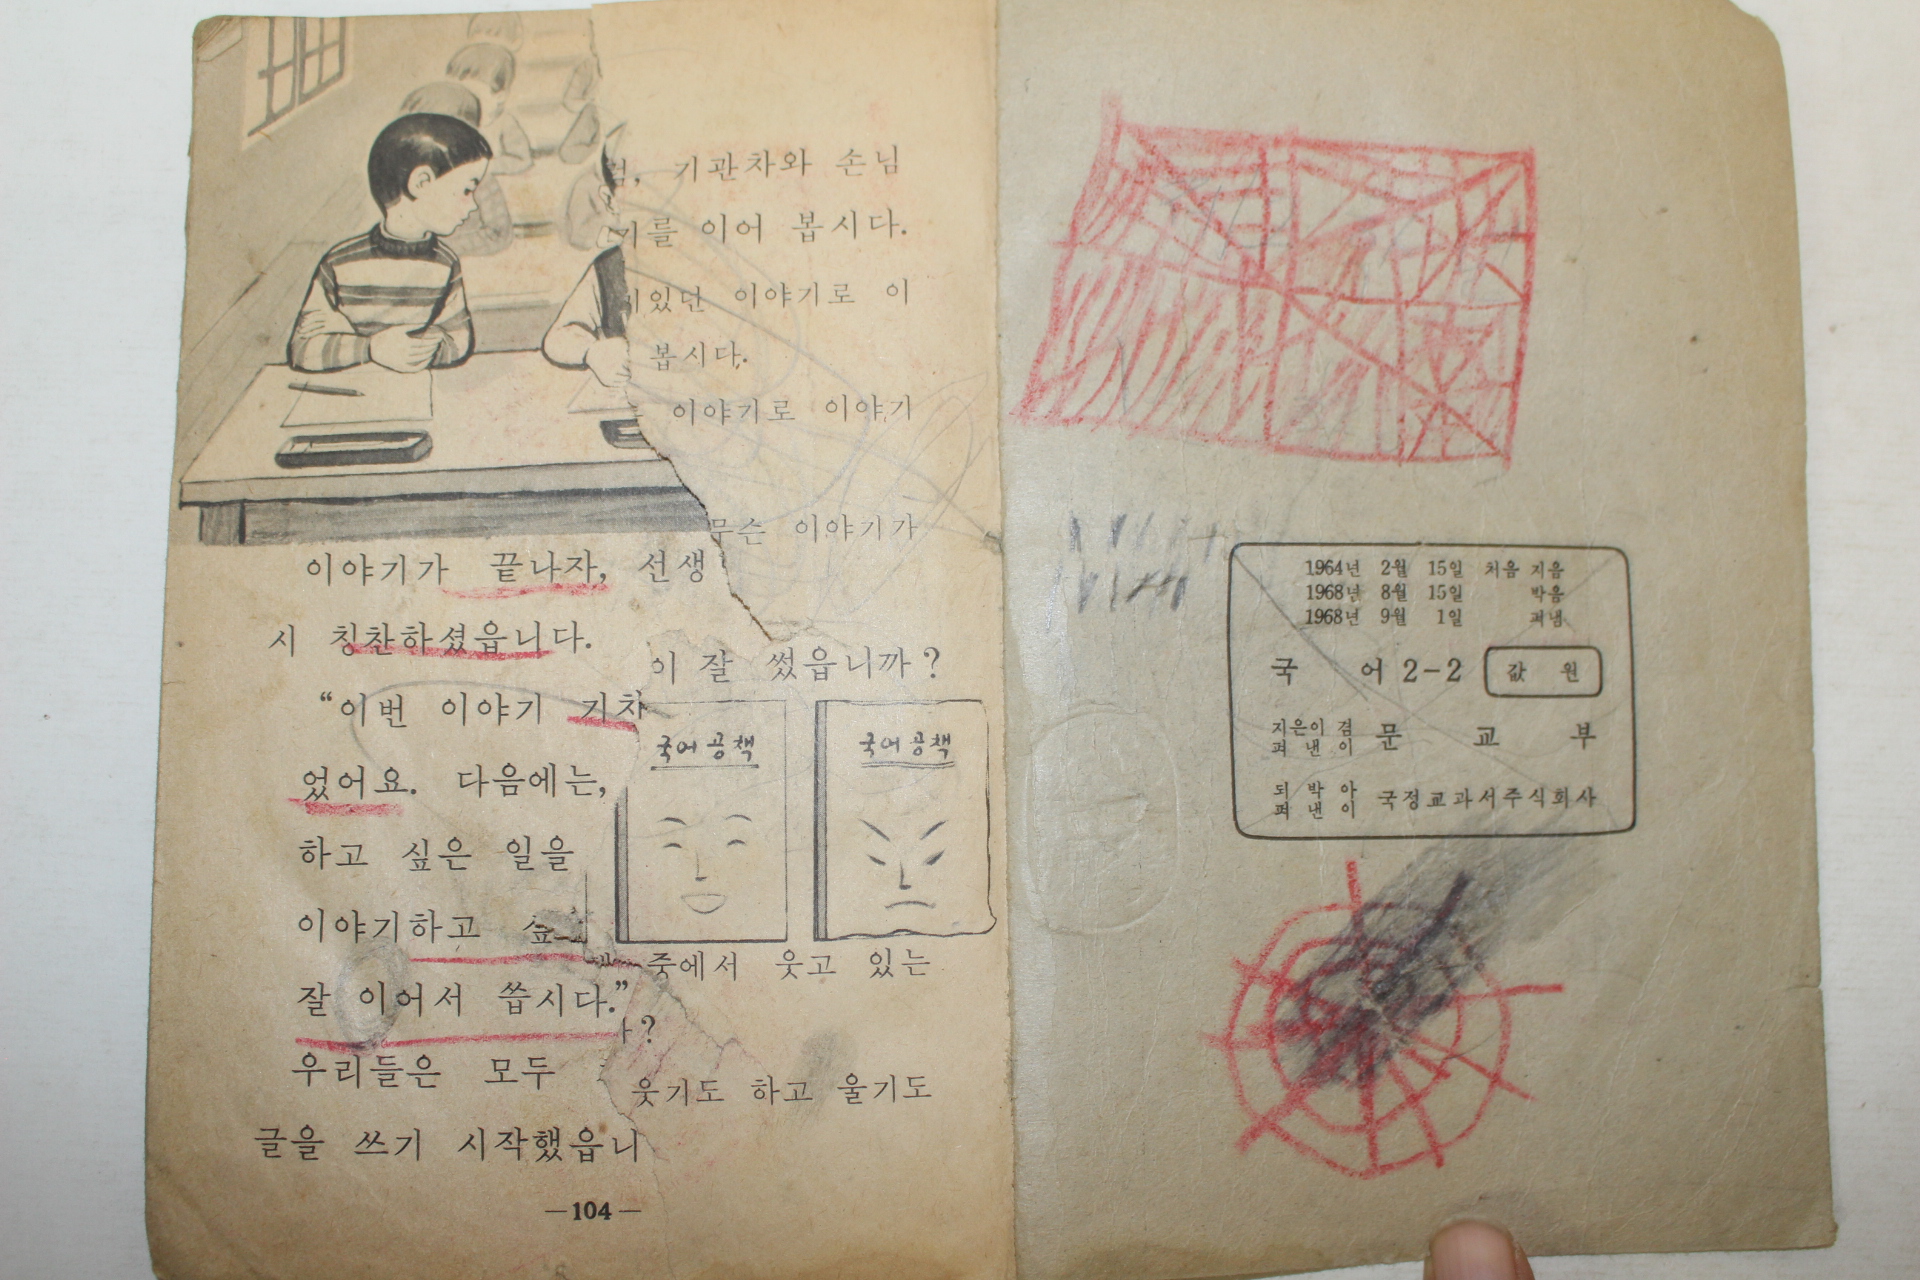 이야기가 끝나자, 선생
시 칭찬하셨읍니다.
“이번 이야기 기차
었어요. 다음에는,
하고 싶은 일을
이야기하고
잘 이어서 씁시다.”
우리들은 모두
글을 쓰기 시작했읍니
—104—
기관차와 손님
기를 이어 봅시다.
있던 이야기로 이
봅시다.
이야기로 이야기
무슨 이야기가
이 잘 썼읍니까?
국어 공책
국어 공책
중에서 웃고 있는
?
웃기도 하고 울기도
1964년 2월 15일 처음 지음
1968년 8월 15일 박음
1968년 9월 1일 펴냄
국 어 2-2 값 원
지은이 겸
펴 낸 이 문 교 부
되 박 아
펴 낸 이 국정교과서주식회사